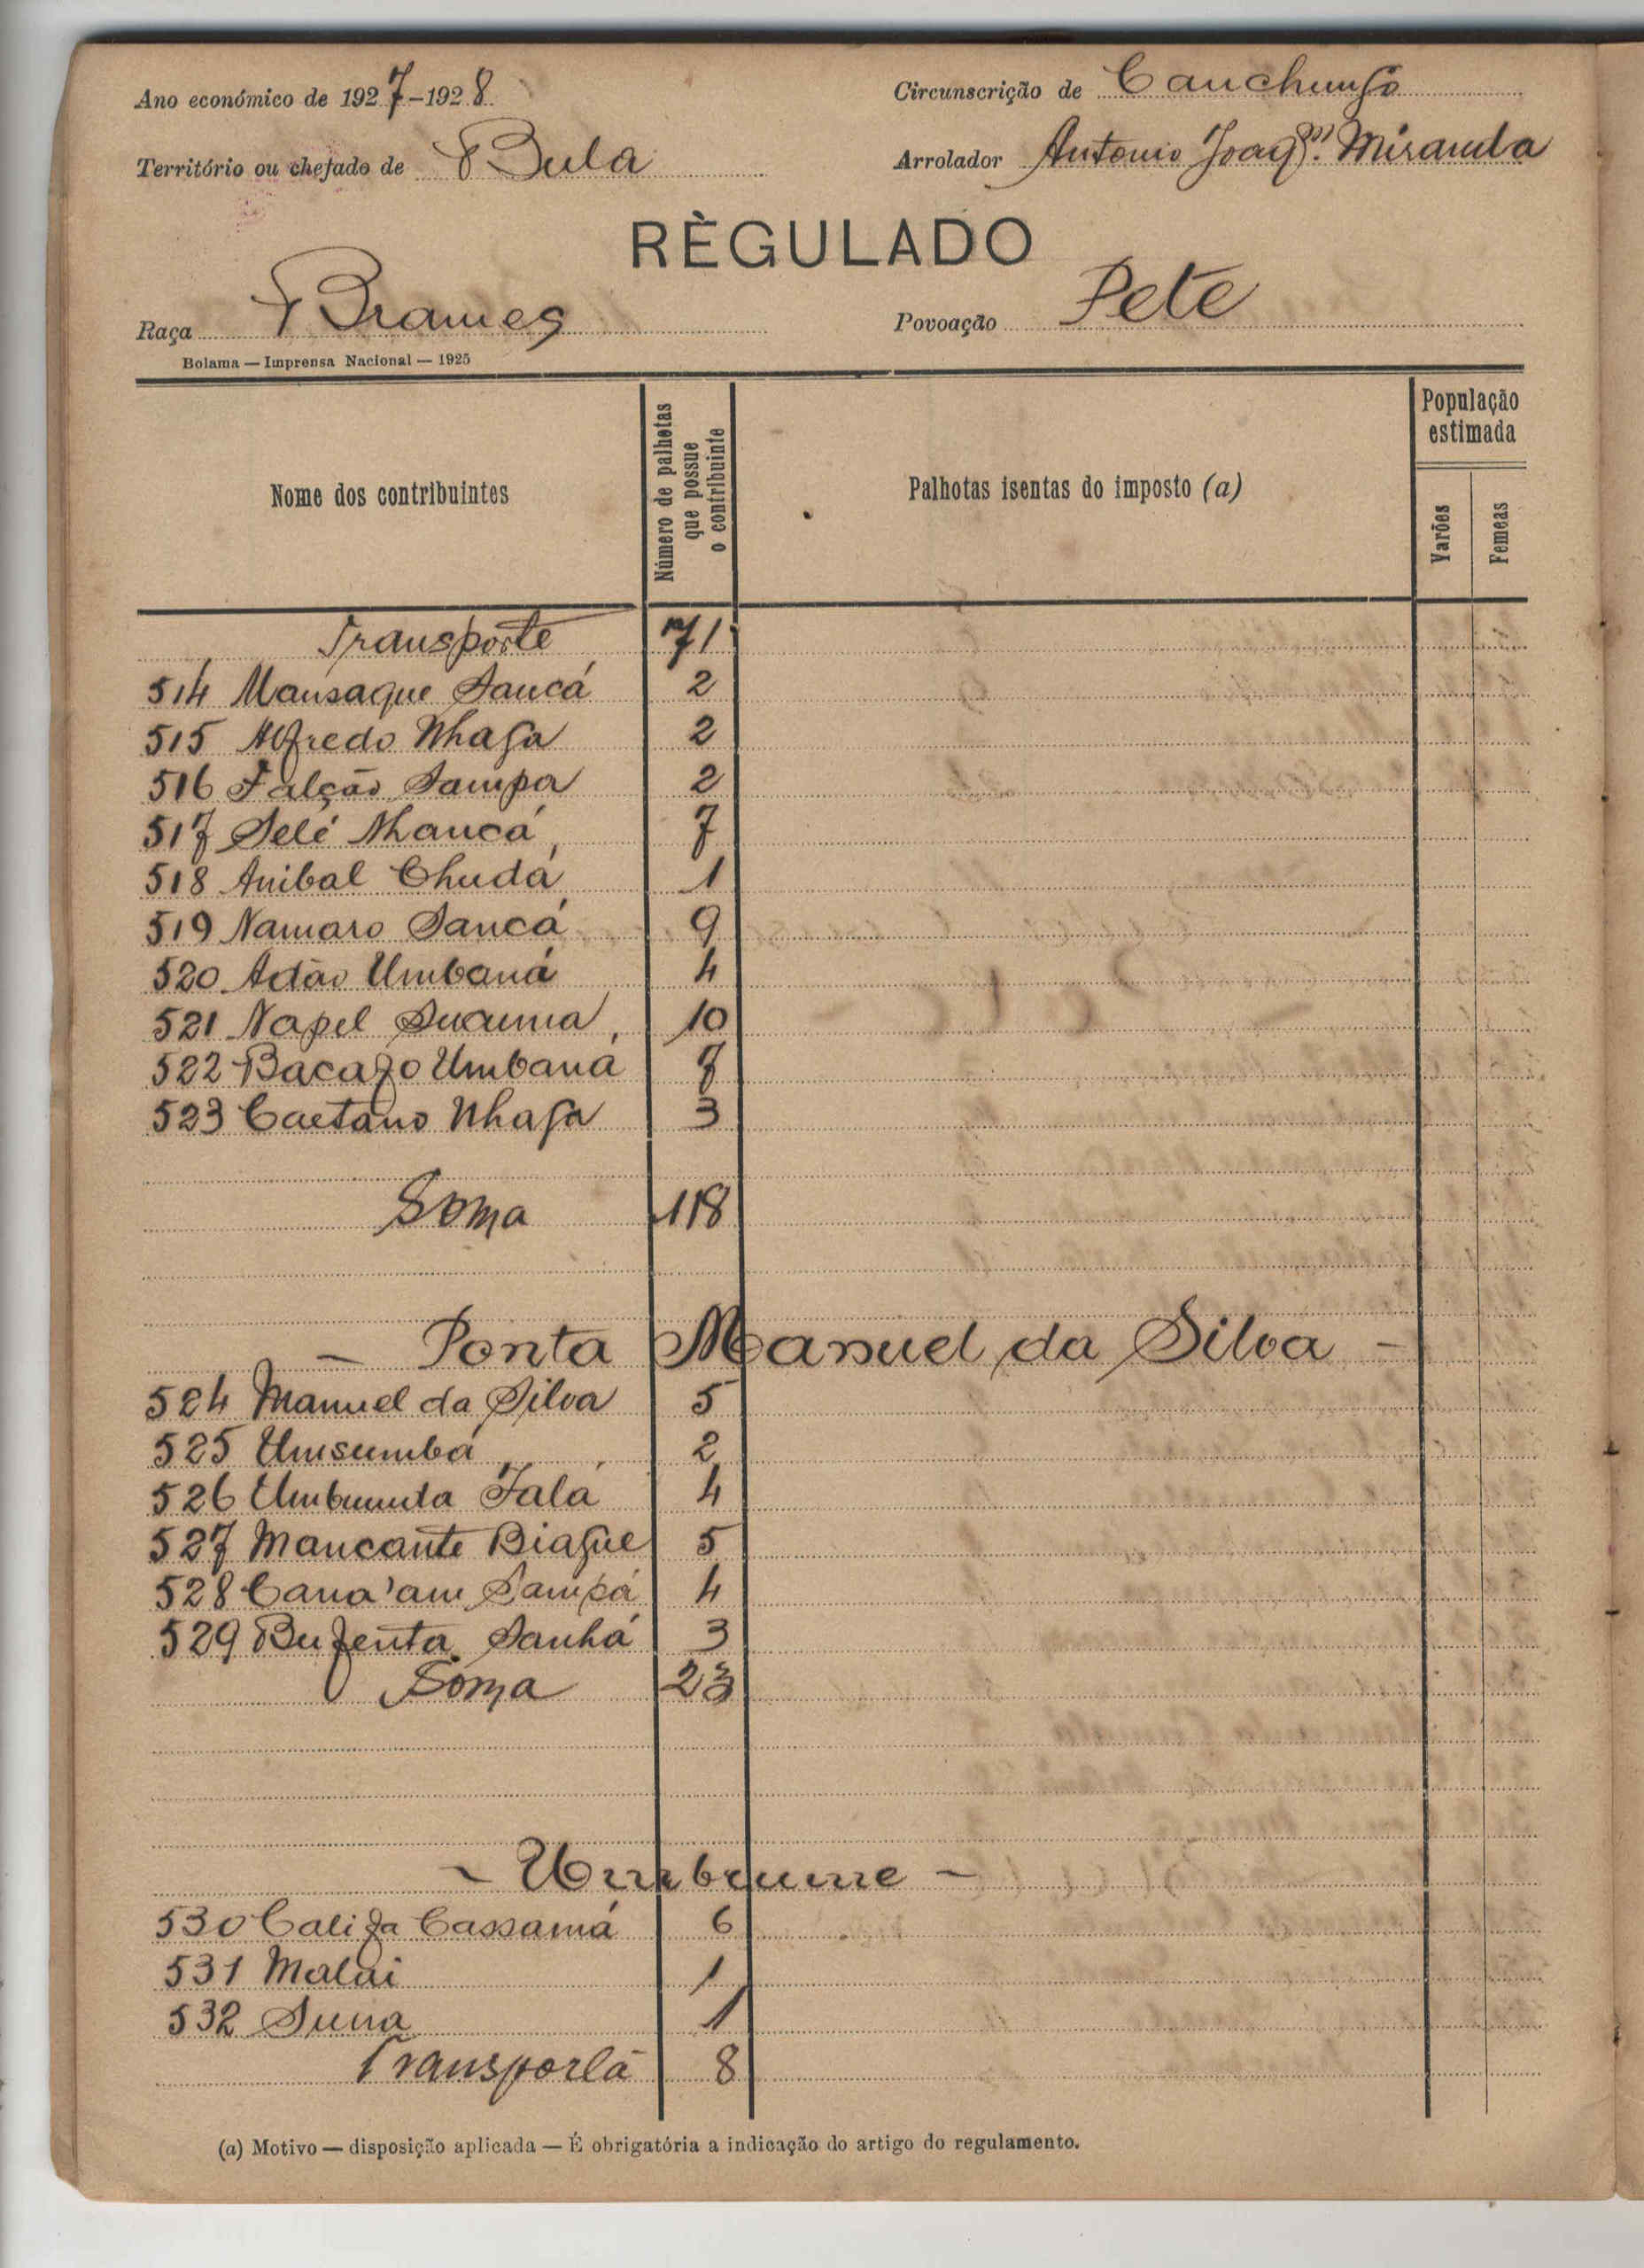 Ano económico de 1927-1928 Circunscrição de Canchungo
Território ou chefado de Bula Arrolador Antonio Joaqm. Miranda
RÈGULADO
Raça Brames Povoação Pete
Bolama — Imprensa Nacional — 1925
Nome dos contribuintes
Número de palhotas
que possue
o contribuinte
Palhotas isentas do imposto (a)
População
estimada
Varões
Femeas
Transporte 71
514 Mansaque Sancá 2
515 Alfredo Nhaga 2
516 Falcão Sampa 2
517 Selé Nhancá 7
518 Anibal Chudá 1
519 Namaro Sancá 9
520 Adão Umbaná 4
521 Napel Suauma 10
522 Bacafo Umbaná 7
523 Caetano Nhaga 3
Soma 118
- Ponta Manuel da Silva -
524 Manuel da Silva 5
525 Umsumbá 2
526 Umbunda Jalá 4
527 Mancante Biague 5
528 Cana'am Sampá 4
529 Bufenta Sanhá 3
Soma 23
- Umbrume -
530 Califa Cassamá 6
531 Malai 1
532 Suna 1
Transporta 8
(a) Motivo — disposição aplicada — É obrigatória a indicação do artigo do regulamento.